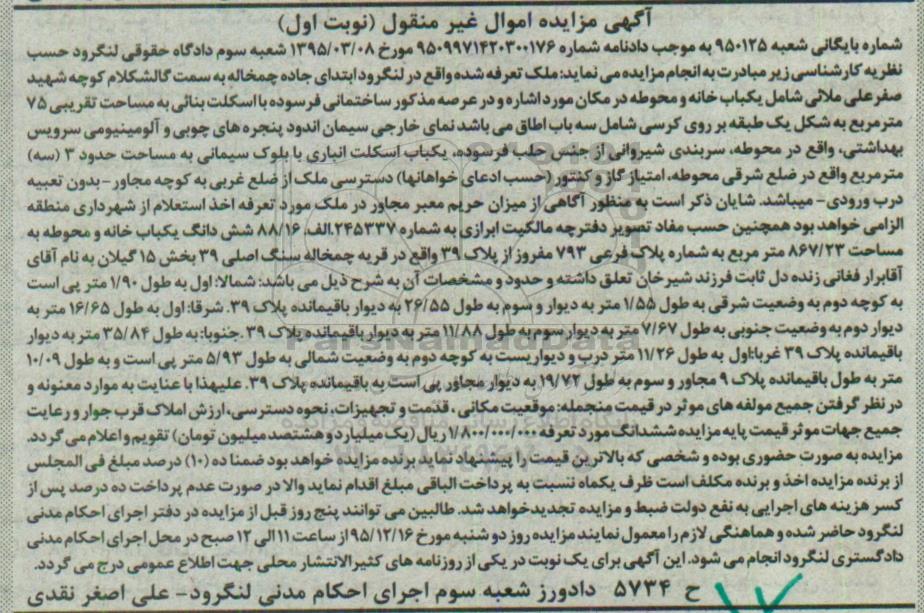 آگهی مزایده اموال غیر منقول (نوبت اول)
شماره بایگانی شعبه ۹۵۰۱۲۵ به موجب دادنامه شماره ۹۵۰۹۹۷۱۴۲۰۳۰۰۱۷۶ مورخ ۱۳۹۵/۰۳/۰۸ شعبه سوم دادگاه حقوقی لنگرود حسب
نظریه کارشناسی زیر مبادرت به انجام مزایده می نماید: ملک تعرفه شده واقع در لنگرود ابتدای جاده چمخاله به سمت گالشکلام کوچه شهید
صفرعلی ملائی شامل یکباب خانه و محوطه در مکان مورد اشاره و در عرصه مذکور ساختمانی فرسوده با اسکلت بنائی به مساحت تقریبی ۷۵
مترمربع به شکل یک طبقه بر روی کرسی شامل سه باب اطاق می باشد نمای خارجی سیمان اندود پنجره های چوبی و آلومینیومی سرویس
بهداشتی، واقع در محوطه، سربندی شیروانی از جنس حلب فرسوده، یکباب اسکلت انباری با بلوک سیمانی به مساحت حدود ۳ (سه)
مترمربع واقع در ضلع شرقی محوطه، امتیاز گاز و کنتور (حسب ادعای خواهانها) دسترسی ملک از ضلع غربی به کوچه مجاور -بدون تعبیه
درب ورودی- میباشد. شایان ذکر است به منظور آگاهی از میزان حریم معبر مجاور در ملک مورد تعرفه اخذ استعلام از شهرداری منطقه
الزامی خواهد بود همچنین حسب مفاد تصویر دفترچه مالکیت ابرازی به شماره ۲۴۵۳۳۷.الف. ۸۸/۱۶ شش دانگ یکباب خانه و محوطه به
مساحت ۸۶۷/۲۳ متر مربع به شماره پلاک فرعی ۷۹۳ مفروز از پلاک ۳۹ واقع در قریه چمخاله سنگ اصلی ۳۹ بخش ۱۵ گیلان به نام آقای
آقابرار فغانی زنده دل ثابت فرزند شیرخان تعلق داشته و حدود و مشخصات آن به شرح ذیل می باشد: شمالا: اول به طول ۱/۹۰ متر پی است
به کوچه دوم به وضعیت شرقی به طول ۱/۵۵ متر به دیوار و سوم به طول ۲۶/۵۵ به دیوار باقیمانده پلاک ۳۹. شرقا: اول به طول ۱۶/۶۵ متر به
دیوار دوم به وضعیت جنوبی به طول ۷/۶۷ متر به دیوار سوم به طول ۱۱/۸۸ متر به دیوار باقیمانده پلاک ۳۹. جنوبا: به طول ۳۵/۸۴ متر به دیوار
باقیمانده پلاک ۳۹ غربا: اول به طول ۱۱/۲۶ متر درب و دیواریست به کوچه دوم به وضعیت شمالی به طول ۵/۹۳ متر پی است و به طول ۱۰/۰۹
متر به طول باقیمانده پلاک ۹ مجاور و سوم به طول ۱۹/۷۲ به دیوار مجاور پی است به باقیمانده پلاک ۳۹. علیهذا با عنایت به موارد معنونه و
در نظر گرفتن جمیع مولفه های موثر در قیمت منجمله: موقعیت مکانی، قدمت و تجهیزات، نحوه دسترسی، ارزش املاک قرب جوار و رعایت
جمیع جهات موثر قیمت پایه مزایده ششدانگ مورد تعرفه ۱/۸۰۰/۰۰۰/۰۰۰ ریال (یک میلیارد و هشتصد میلیون تومان) تقویم و اعلام می گردد.
مزایده به صورت حضوری بوده و شخصی که بالاترین قیمت را پیشنهاد نماید برنده مزایده خواهد بود ضمنا ده (۱۰) درصد مبلغ فی المجلس
از برنده مزایده اخذ و برنده مکلف است ظرف یکماه نسبت به پرداخت الباقی مبلغ اقدام نماید والا در صورت عدم پرداخت ده درصد پس از
کسر هزینه های اجرایی به نفع دولت ضبط و مزایده تجدید خواهد شد. طالبین می توانند پنج روز قبل از مزایده در دفتر اجرای احکام مدنی
لنگرود حاضر شده و هماهنگی لازم را معمول نمایند مزایده روز دو شنبه مورخ ۹۵/۱۲/۱۶ از ساعت ۱۱ الی ۱۲ صبح در محل اجرای احکام مدنی
دادگستری لنگرود انجام می شود. این آگهی برای یک نوبت در یکی از روزنامه های کثیرالانتشار محلی جهت اطلاع عمومی درج می گردد.
ح ۵۷۳۴ دادورز شعبه سوم اجرای احکام مدنی لنگرود- علی اصغر نقدی